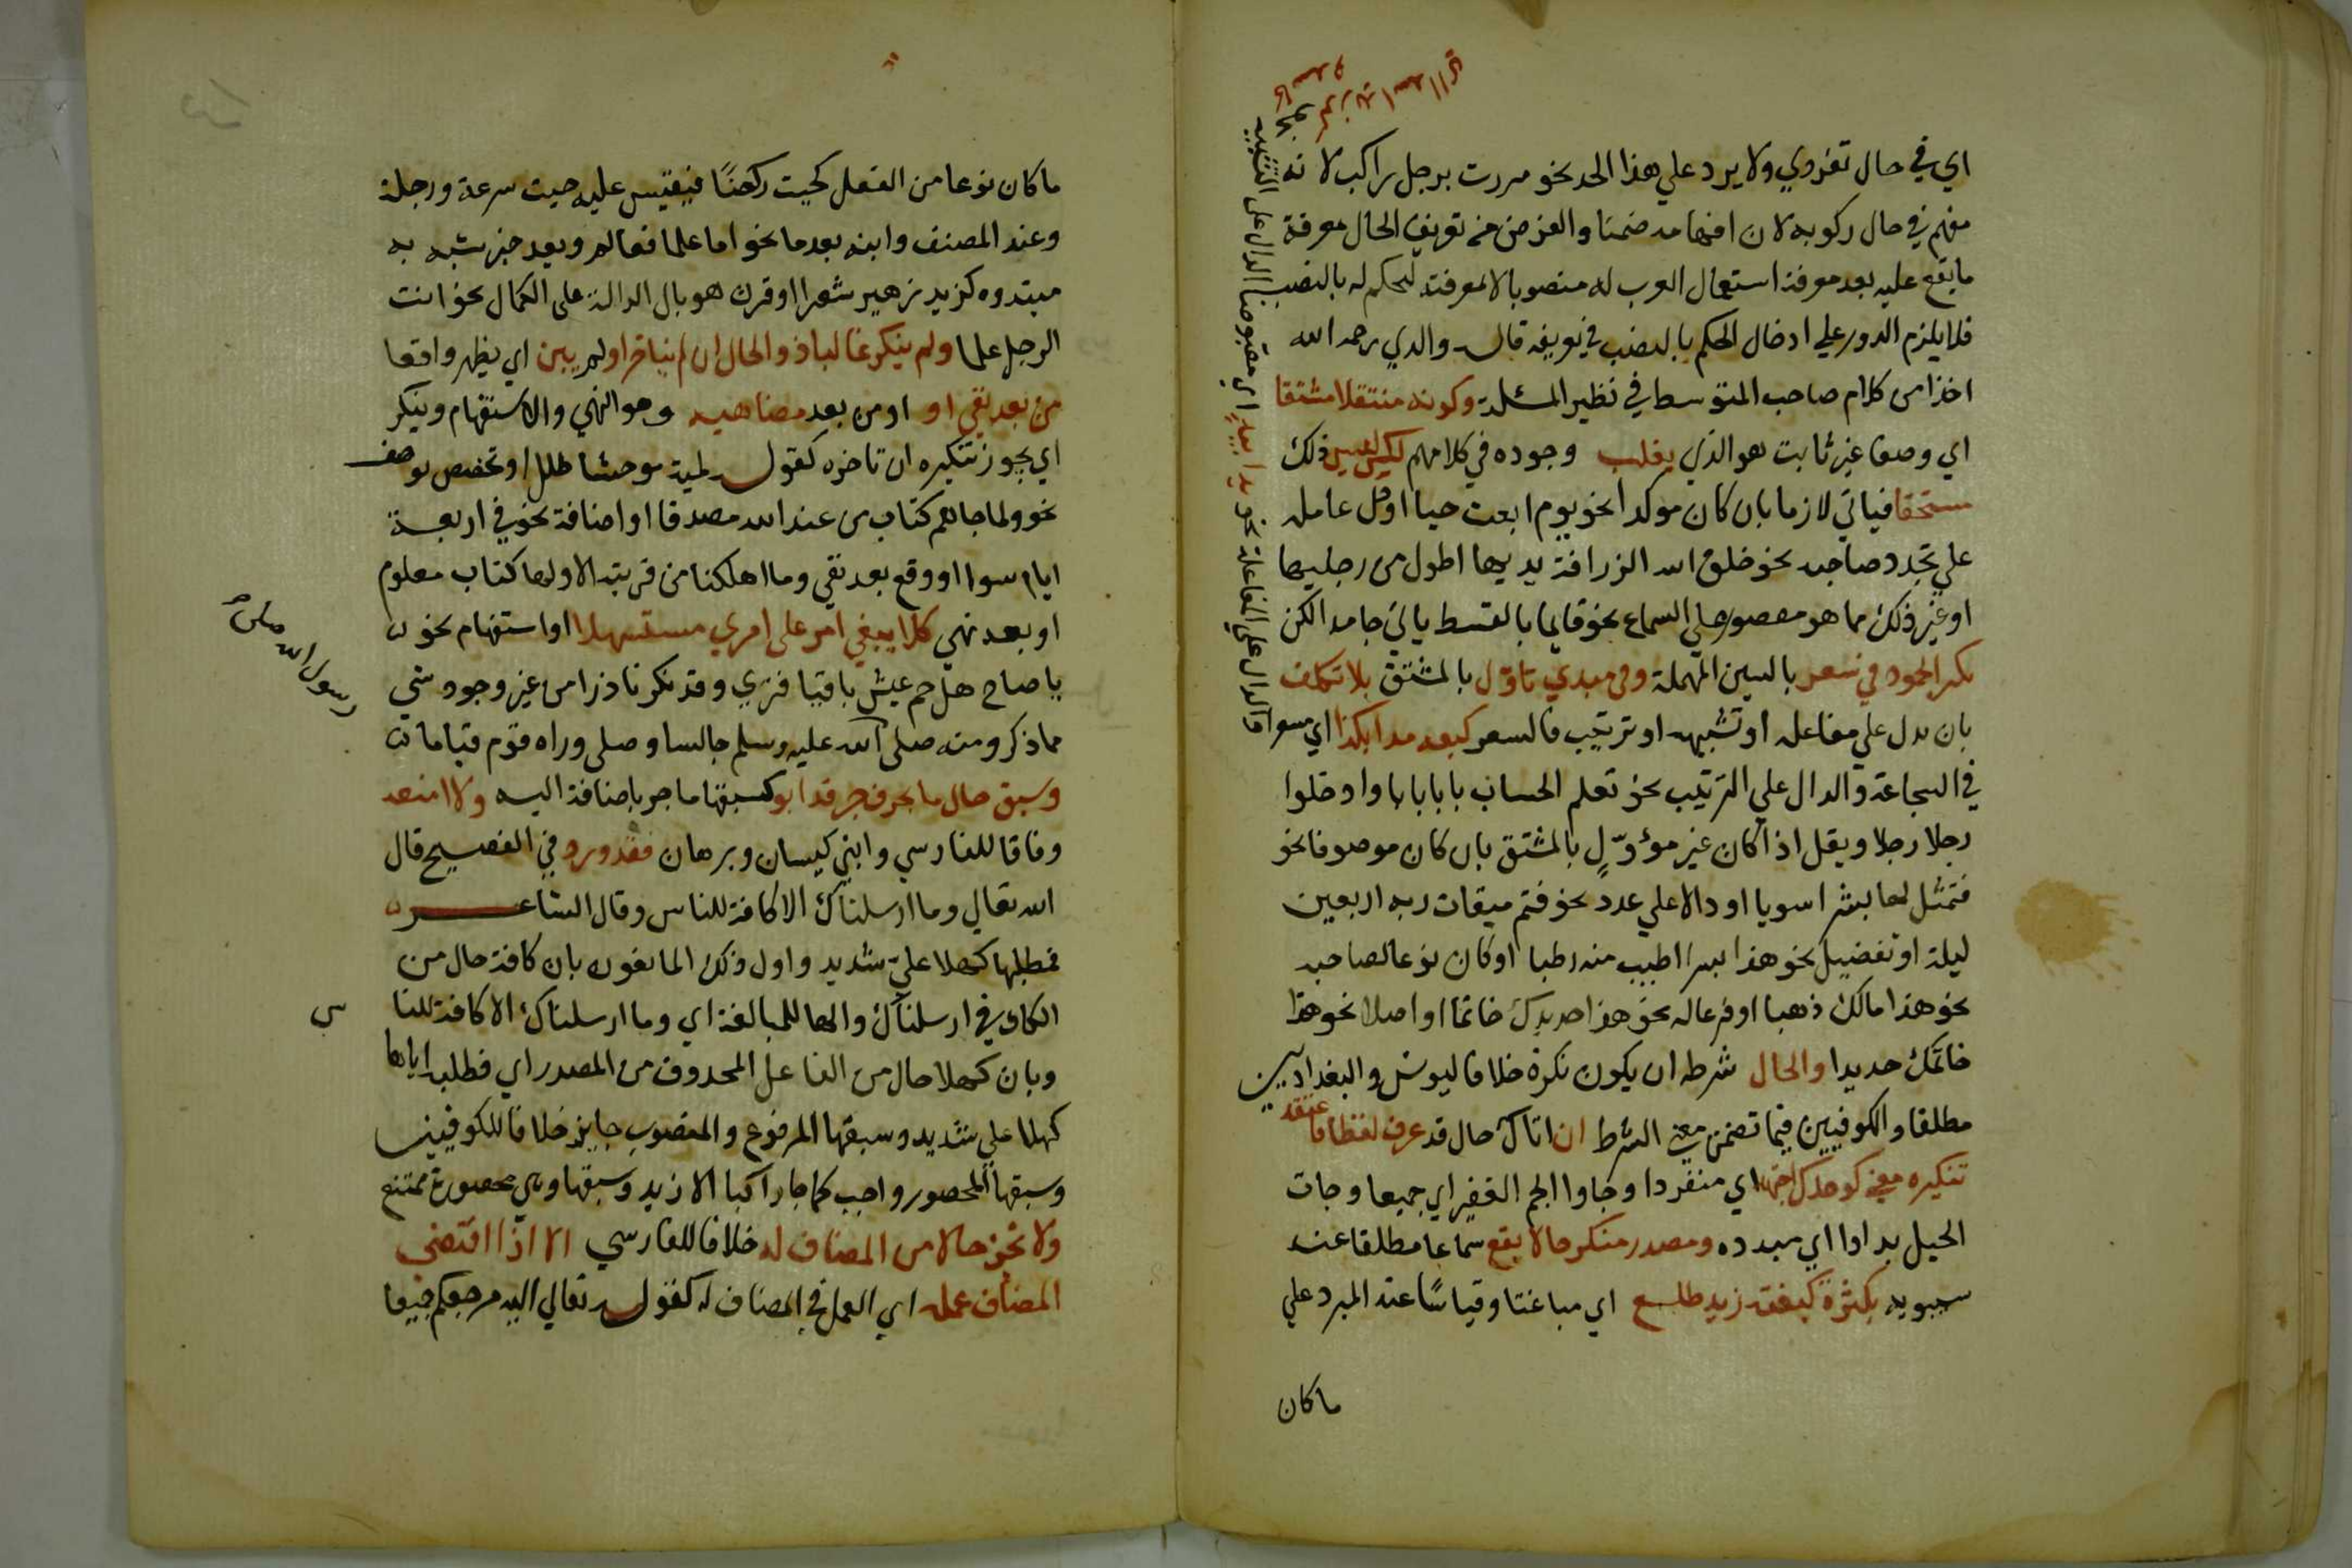 اي في حال تفردي ولا يرد علي هذا الحد نحو مررت برجل راكب لانه
مفهم في حال ركوبه لان افهامه ضمنا والغرض من تعريف الحال معرفة
ما يقع عليه بعد معرفة استعمال العرب له منصوبا لا لمعرفته ليحكم له بالنصب
فلا يلزم الدور علي ادخال الحكم بالنصب في تعريفه قال والدي رحمه الله
اخذا من كلام صاحب المتوسط في نظير المسئلة وكونه منتقلا مشتقا
اي وصفا غير ثابت هو الذي يغلب وجوده في كلامهم لكن ليس ذلك
مستحقا فياتي لازما بان كان موكدا نحو يوم ابعث حيا او دل عامله
علي تجدد صاحبه نحو خلق الله الزرافة يديها اطول من رجليها
او غير ذلك مما هو مقصور علي السماع نحو قايما بالقسط ياتي جامدا لكن
يكثر الجمود في سعر بالسين المهملة وفي مبدي تاوّل بالمشتق بلا تكلف
بان يدل علي مفاعله او تشبيه او ترتيب فالسعر كبعه مدا بكذا اي مسعرا
في الشجاعة والدال علي الترتيب نحو تعلم الحساب بابا بابا وادخلوا
رجلا رجلا ويقل اذا كان غير مؤوّل بالمشتق بان كان موصوفا نحو
فتمثل لها بشرا سويا او دالا علي عدد نحو فتم ميقات ربه اربعين
ليلة او تفضيل نحو هذا بسرا اطيب منه رطبا او كان نوعا لصاحبه
نحو هذا مالك ذهبا او فرعا له نحو هذا حديدك خاتما او اصلا نحو هذا
خاتمك حديدا والحال شرطه ان يكون نكرة خلافا ليونس والبغداديين
مطلقا والكوفيين فيما تضمن معني الشرط ان اتاك حال قد عرف لفظا فاعتقد
تنكيره معني كوحدك اجتهد اي منفردا وجاوا الجم الغفير اي جميعا وجات
الخيل بداد اي مبدده ومصدر منكر حالا يقع سماعا مطلقا عند
سيبويه بكثرة كبغتة زيد طلع اي مباغتا وقياسًا عند المبرد علي
ما كان
والدال علي المفاعلة نحو يدا بيدٍ اي مقبوضا الدال علي التشبيه
نحو كر زيد اسدا اي كاسد
ما كان نوعا من الفعل كجيت ركضًا فيقيس عليه جيت سرعة ورجلة
وعند المصنف وابنه بعد ما نحو اما علما فعالم وبعد خبر شبه به
مبتدوه كزيد زهير شعرا او قرن هو بال الدالة علي الكمال نحو انت
الرجل علما ولم ينكر غالبا ذو الحال ان لم يتاخر او لم يبين اي يظهر واقعا
من بعد نفي او او من بعد مضاهيه وهو النهي والاستفهام وينكر
اي يجوز تنكيره ان تاخره كقول لمية موحشا طلل او تخصص بوصف
نحو ولما جاهم كتاب من عند الله مصدقا او اضافة نحو في اربعة
ايام سوا او وقع بعد نفي وما اهلكنا من قرية الا ولها كتاب معلوم
او بعد نهي كلا يبغي امر علي امري مستسهلا او استفهام نحو
يا صاح هل حم عيش باقيا فتري وقد نكر نادرا من غير وجود شي
مما ذكر ومنه صلي الله عليه وسلم جالسا وصلي وراه قوم قياما
رسول الله صلي
وسبق حال ما بحرف جر قد ابو كسبقها ما جر باضافة اليه ولا امنعه
وفاقا للفارسي وابني كيسان وبرهان فقد ورد في الفصيح قال
الله تعالي وما ارسلناك الا كافة للناس وقال الشاعر
فمطلبها كهلا عليّ شديد واول ذلك المانعون بان كافة حال من
الكاف في ارسلناك والها للمبالغة اي وما ارسلناك الا كافة للنا
س
وبان كهلا حال من الفاعل المحذوف من المصدر اي فطلبه اياها
كهلا علي شديد وسبقها المرفوع والمنصوب جايز خلافا للكوفيين
وسبقها المحصور واجب كما جا راكبا الا زيد وسبقها وهي محصورة ممتنع
ولا تجز حالا من المضاف له خلافا للفارسي الا اذا اقتضي
المضاف عمله اي العمل في المضاف له كقوله تعالي اليه مرجعكم جميعا